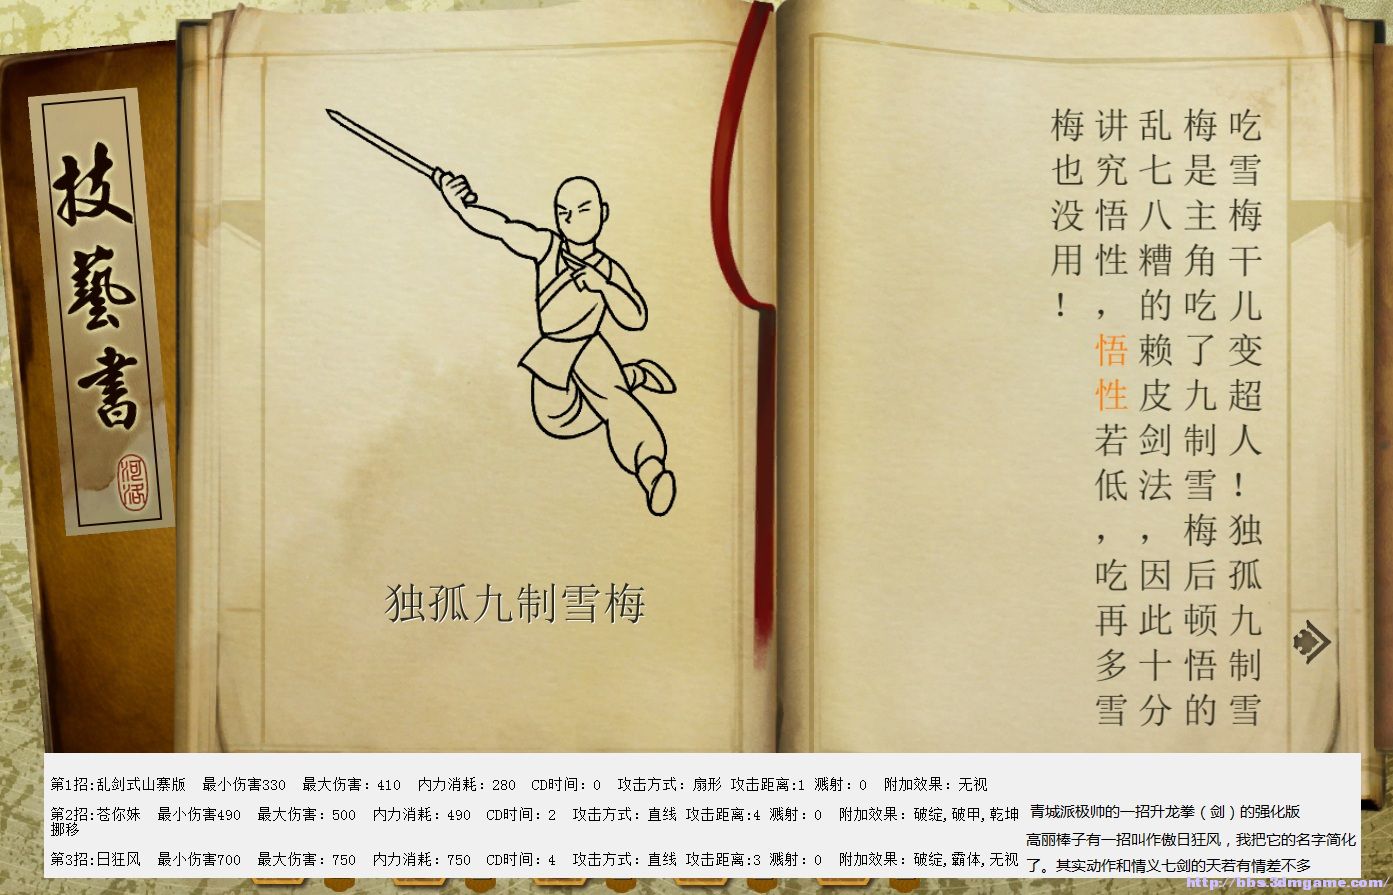 技藝書
河洛
独孤九制雪梅
吃雪梅干儿变超人！独孤九制雪
梅是主角吃了九制雪梅后顿悟的
乱七八糟的赖皮剑法，因此十分
讲究悟性，悟性若低，吃再多雪
梅也没用！
第1招:乱剑式山寨版 最小伤害330 最大伤害：410 内力消耗：280 CD时间：0 攻击方式：扇形 攻击距离:1 溅射：0 附加效果：无视
第2招:苍你妹 最小伤害490 最大伤害：500 内力消耗：490 CD时间：2 攻击方式：直线 攻击距离:4 溅射：0 附加效果：破绽,破甲,乾坤
挪移
第3招:日狂风 最小伤害700 最大伤害：750 内力消耗：750 CD时间：4 攻击方式：直线 攻击距离:3 溅射：0 附加效果：破绽,霸体,无视
青城派极帅的一招升龙拳（剑）的强化版
高丽棒子有一招叫作傲日狂风，我把它的名字简化
了。其实动作和情义七剑的天若有情差不多
http://bbs.3dmgame.com/